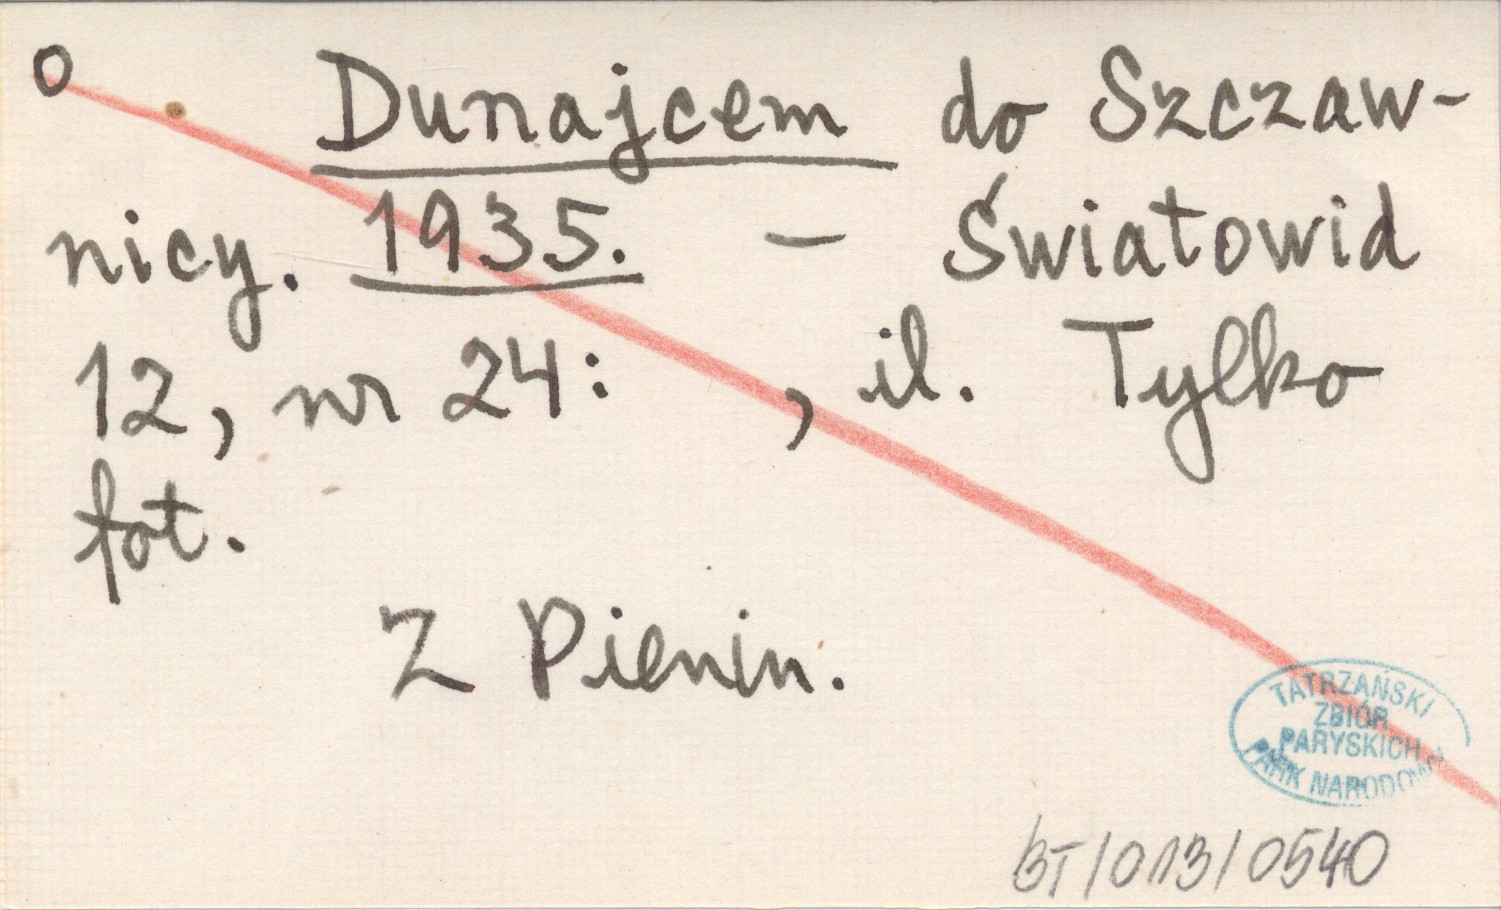 O Dunajcem do Szczaw-
nicy. 1935. – Światowid
12, nr 24: , il. Tylko
fot.
Z Pienin.
TATRZAŃSKI
ZBIÓR
PARYSKICH
PARK NARODOWY
BT/013/0540